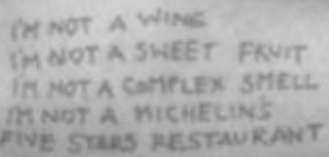 I'M NOT A WINE
I'M NOT A SWEET FRUIT
I'M NOT A COMPLEX SMELL
I'M NOT A MICHELIN'S
FIVE STARS RESTAURANT